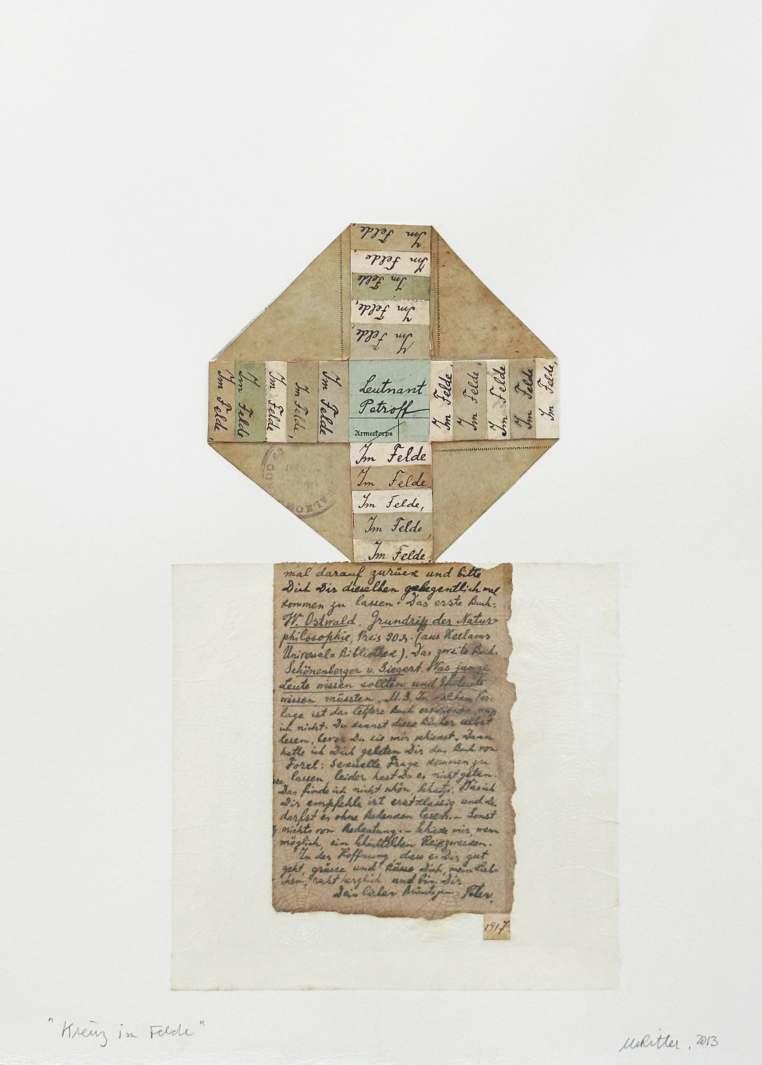 Im Felde,
Im Felde
Im Felde
Im Felde,
Im Felde,
Im Felde,
Im Felde
Im Felde
Im Felde,
Im Felde
Leutnant
Petroff
Armeekorps
Im Felde,
Im Felde,
Im Felde
Im Felde
Im Felde,
Im Felde
Im Felde
Im Felde,
Im Felde,
Im Felde
mal darauf zurück und bitte
Dich Dir dieselben gelegentlich mal
kommen zu lassen. Das erste Buch:
W. Ostwald. Grundriß der Natur=
philosophie, Preis (aus Reclams
Universal Bibliothek). Das zweite Buch
Schönenberger u. Siegert. Was junge
Leute wissen sollten und Eheleute
wissen müssten. In welchem Ver=
lage ist das letztere Buch erschienen
ich nicht. Du kannst diese Bücher selbst
lesen, bevor Du sie mir schickst. Dann
hatte ich Dich gebeten Dir das Buch von
Forel: Sexuelle Frage kommen zu
lassen leider hast Du es nicht getan.
Das finde ich nicht schön Was ich
Dir empfehle ist erstklassig und du
darfst es ohne Bedenken lesen. – Sonst
nichts von Bedeutung. – Schicke mir, wenn
möglich, ein
In der Hoffnung, dass es Dir gut
geht, grüsse und küsse Dich, mein Lieb=
chen, recht herzlich und bin Dir
Dein lieber Bräutigam Peter.
1917
"Kreuz im Felde"
Ritter, 2013